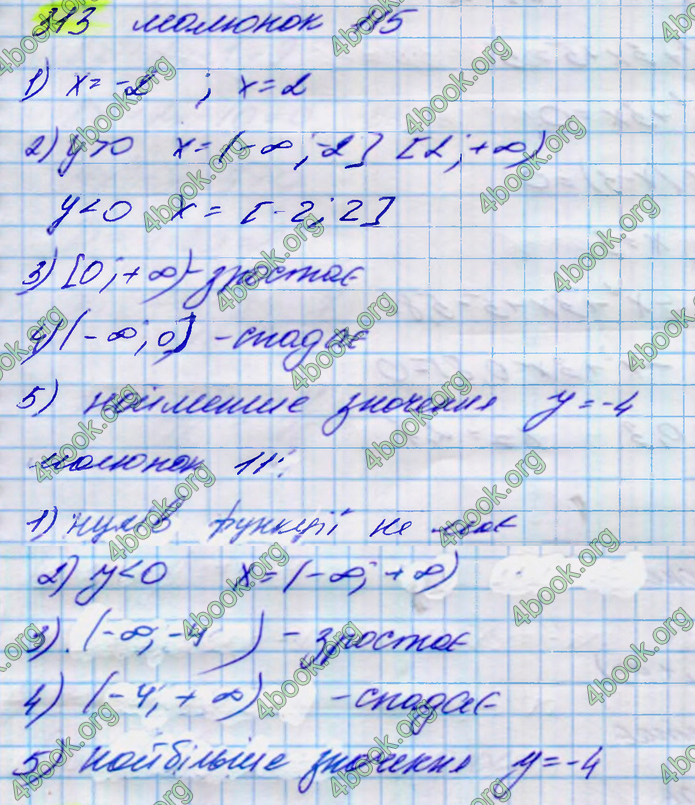 313 малюнок 85
1) x = -2 ; x = 2
2) y>0 x = (-∞; -2] [2; +∞)
y<0 x = [-2; 2]
3) [0; +∞) - зростає
4) (-∞; 0] - спадає
5) найменше значення y = -4
малюнок 11:
1) нулів функції не має
2) y<0 x = (-∞; +∞)
3) (-∞; -4 ) - зростає
4) (-4; +∞) - спадає
5) найбільше значення y = -4
4book.org